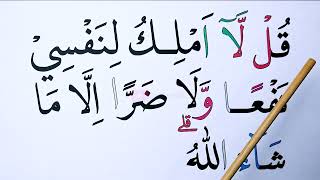 قُلْ لَّآ اَمْلِكُ لِنَفْسِيْ
نَفْعًا وَّلَا ضَرًّا اِلَّا مَا
شَآءَ اللّٰهُ ؕ قلے